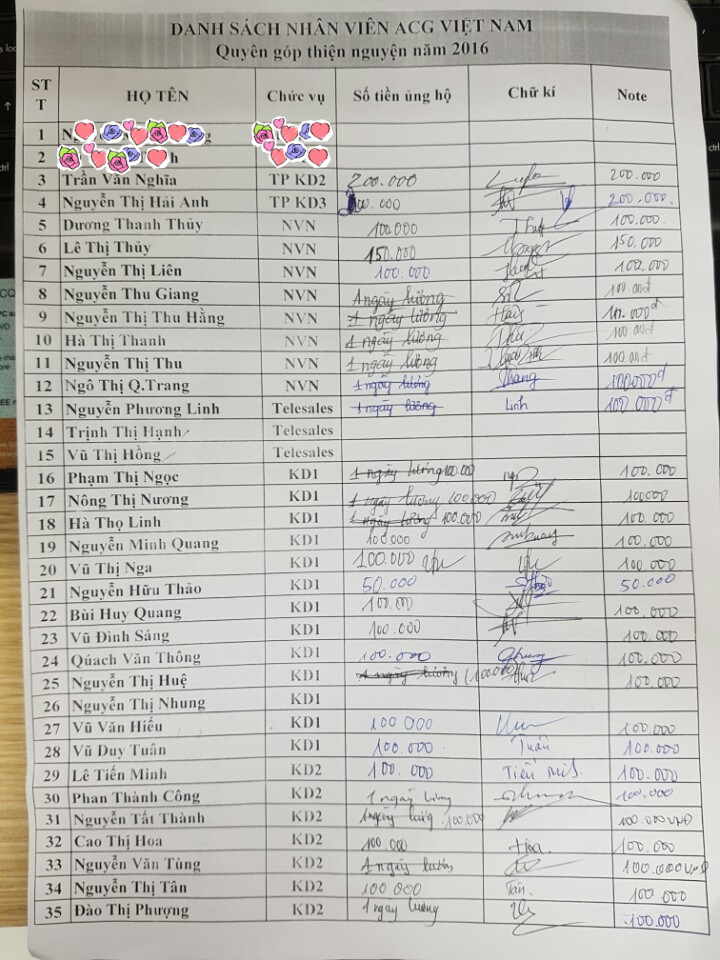 DANH SÁCH NHÂN VIÊN ACG VIỆT NAM
Quyên góp thiện nguyện năm 2016
STT HỌ TÊN Chức vụ Số tiền ủng hộ Chữ kí Note
1
2
3 Trần Văn Nghĩa TP KD2 200.000 200.000
4 Nguyễn Thị Hải Anh TP KD3 200.000
5 Dương Thanh Thủy NVN 100.000 100.000
6 Lê Thị Thủy NVN 150.000 150.000
7 Nguyễn Thị Liên NVN 100.000 100.000
8 Nguyễn Thu Giang NVN 1 ngày lương 100.000đ
9 Nguyễn Thị Thu Hằng NVN 1 ngày lương 100.000đ
10 Hà Thị Thanh NVN 1 ngày lương 100.000đ
11 Nguyễn Thị Thu NVN 1 ngày lương 100.000đ
12 Ngô Thị Q.Trang NVN 1 ngày lương Trang 100.000đ
13 Nguyễn Phương Linh Telesales 1 ngày lương Linh 100.000đ
14 Trịnh Thị Hạnh Telesales
15 Vũ Thị Hồng Telesales
16 Phạm Thị Ngọc KD1 1 ngày lương 100.000 100.000
17 Nông Thị Nương KD1 1 ngày lương 100.000 100000
18 Hà Thọ Linh KD1 1 ngày lương 100.000 100.000
19 Nguyễn Minh Quang KD1 100.000 100.000
20 Vũ Thị Nga KD1 100.000 100.000
21 Nguyễn Hữu Thảo KD1 50.000 50.000
22 Bùi Huy Quang KD1 100.000 100.000
23 Vũ Đình Sáng KD1 100.000 100.000
24 Qúach Văn Thông KD1 100.000 100.000
25 Nguyễn Thị Huệ KD1 1 ngày lương (100.000) 100.000
26 Nguyễn Thị Nhung KD1
27 Vũ Văn Hiếu KD1 100 000 100.000
28 Vũ Duy Tuân KD1 100.000 Tuân 100.000
29 Lê Tiến Minh KD2 100.000 100.000
30 Phan Thành Công KD2 1 ngày lương 100.000
31 Nguyễn Tất Thành KD2 1 ngày lương .100.000 100.000 VNĐ
32 Cao Thị Hoa KD2 100.000 Hoa. 100.000
33 Nguyễn Văn Tùng KD2 1 ngày lương 100.000 VNĐ
34 Nguyễn Thị Tân KD2 100 000 Tân. 100.000
35 Đào Thị Phượng KD2 1 ngày lương 100.000